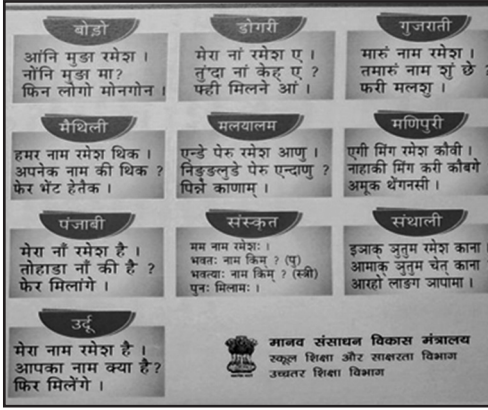 बोड़ो
आंनि मुङा रमेश ।
नोंनि मुङा मा?
फिन लोगो मोनगोन ।
डोगरी
मेरा नां रमेश ए ।
तुंदा नां केह् ए ?
फ्ही मिलने आं ।
गुजराती
मारुं नाम रमेश ।
तमारुं नाम शुं छे ?
फरी मलशु ।
मैथिली
हमर नाम रमेश थिक ।
अपनेक नाम की थिक ?
फेर भेंट हेतैक ।
मलयालम
एन्डे पेरु रमेश आणु ।
निङ्ङलुडे पेरु एन्दाणु ?
पिन्ने काणाम् ।
मणिपुरी
एगी मिंग रमेश कौवी ।
नाहाकी मिंग करी कौबगे
अमूक थेंगनसी ।
पंजाबी
मेरा नाँ रमेश है ।
तोहाडा नाँ की है ?
फेर मिलांगे ।
संस्कृत
मम नाम रमेशः ।
भवतः नाम किम् ? (पु)
भवत्याः नाम किम् ? (स्त्री)
पुनः मिलामः ।
संथाली
इञाक् ञुतुम रमेश काना
आमाक् ञुतुम चेत् काना
आरहो लाङग ञापामा ।
उर्दू
मेरा नाम रमेश है ।
आपका नाम क्या है?
फिर मिलेंगे ।
मानव संसाधन विकास मंत्रालय
स्कूल शिक्षा और साक्षरता विभाग
उच्चतर शिक्षा विभाग